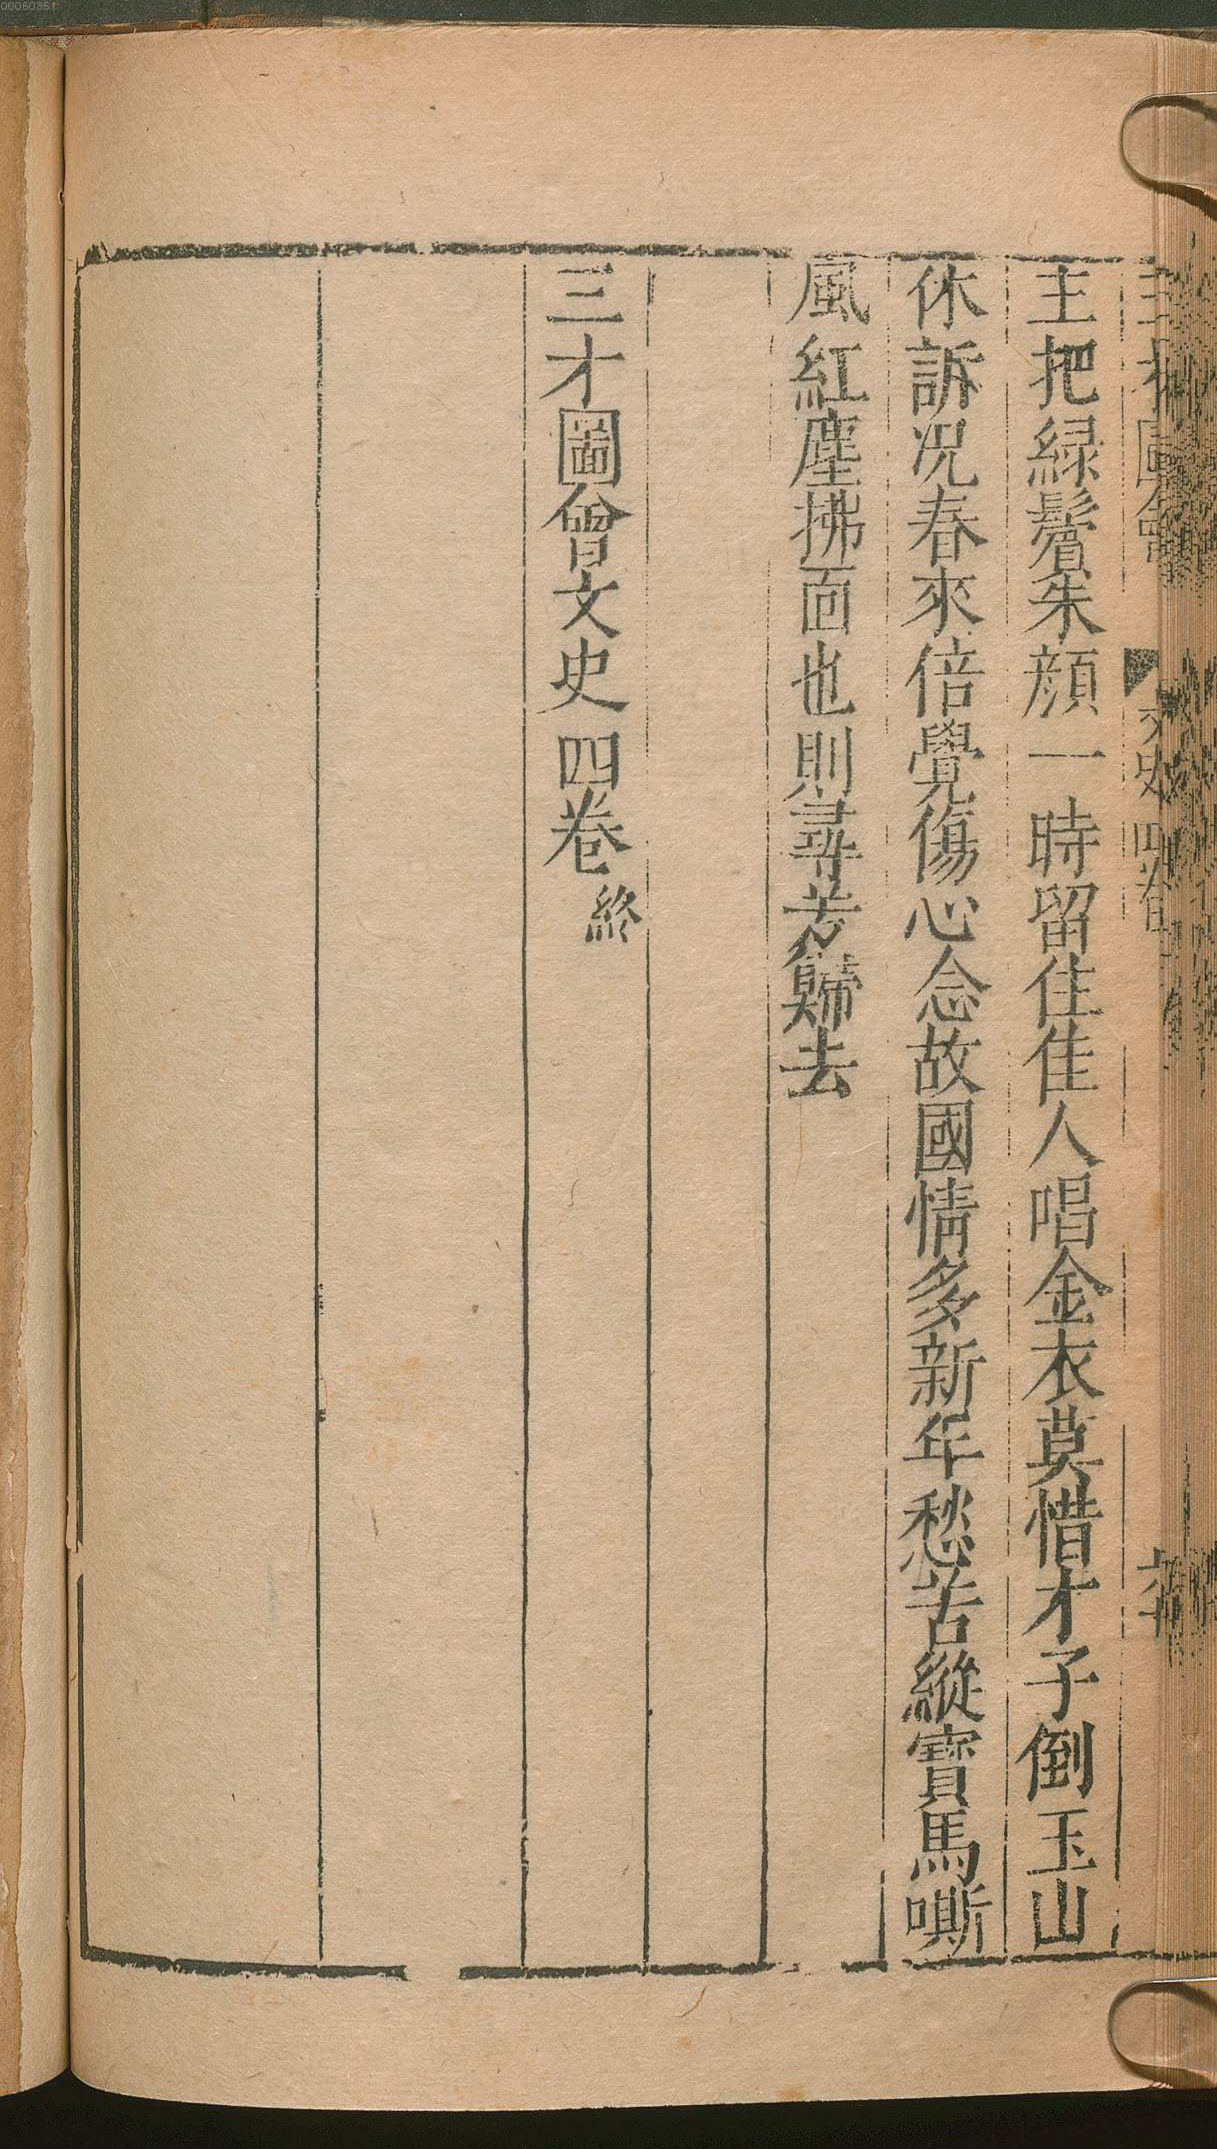 三才圖會 文史四卷
主把綠鬢朱顔一時留住佳人唱金衣莫惜才子倒玉山
休訴况春來倍覺傷心念故國情多新年愁苦縱寶馬嘶
風紅塵拂面也則尋芳歸去
三才圖會文史四卷終
00060351